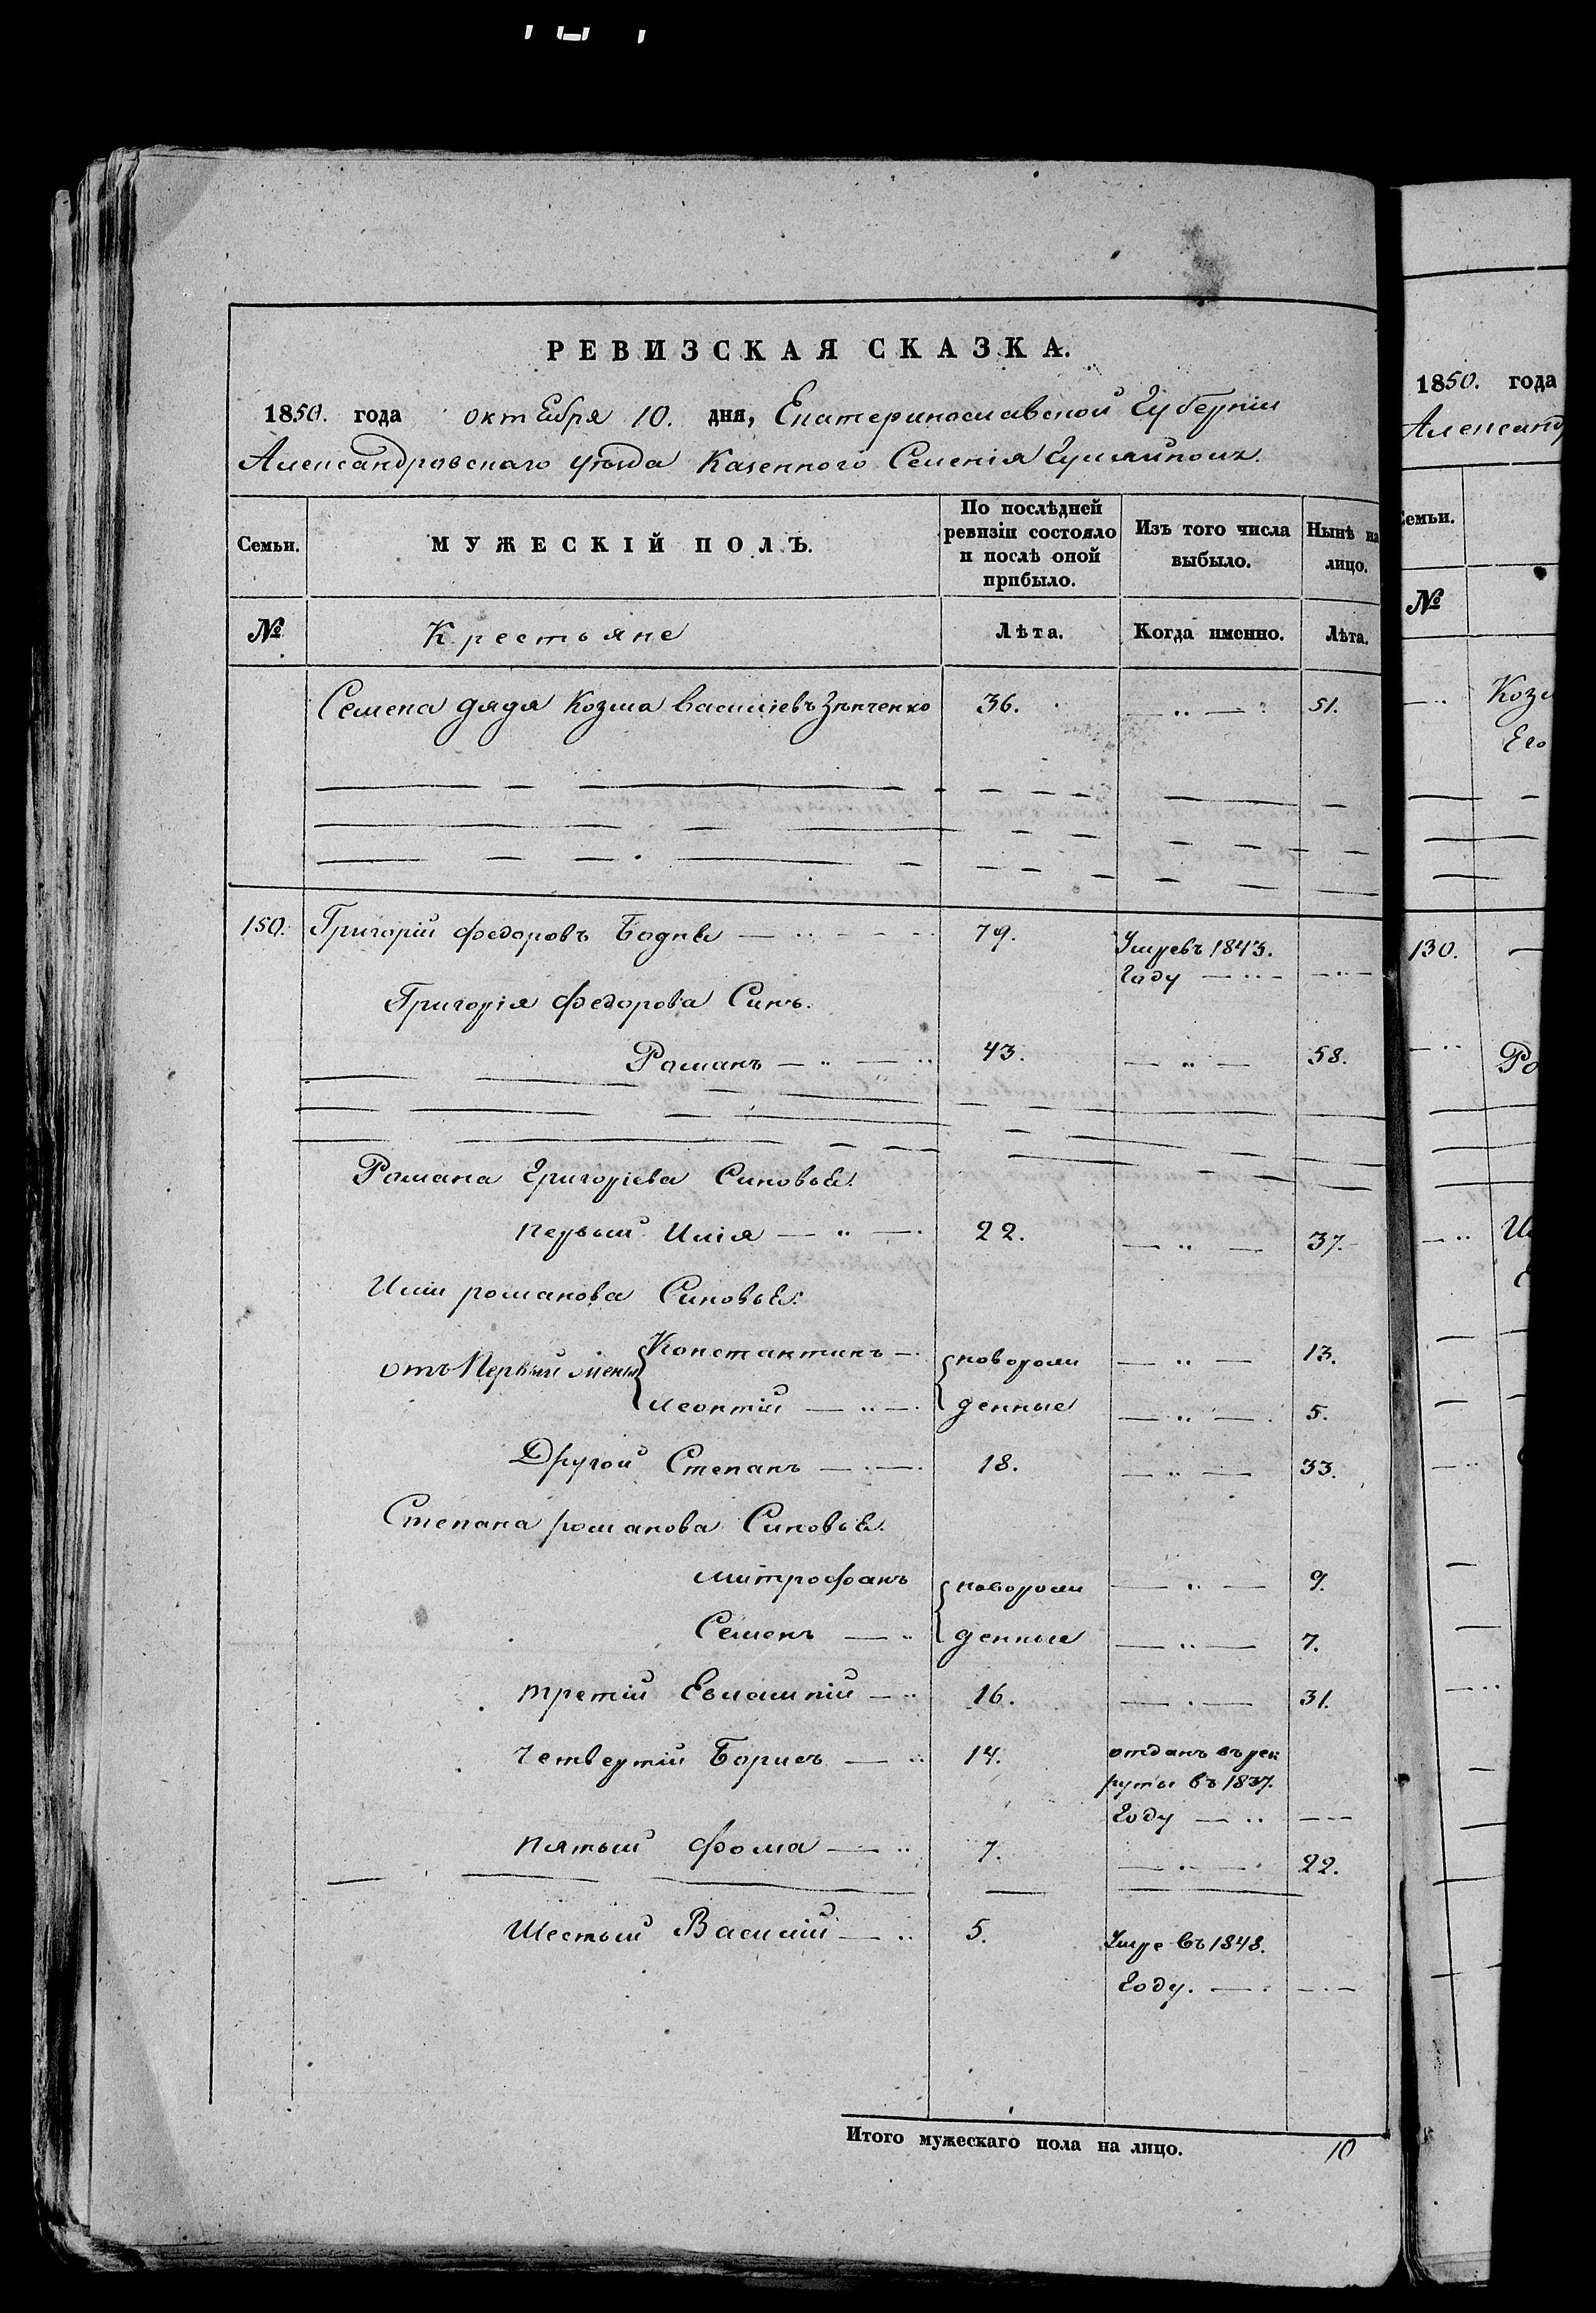 РЕВИЗСКАЯ СКАЗКА.
1850. года октября 10. дня, Екатеринославской Губерніи
Александровскаго уѣзда Казенного Селенія Гуляйполя.
Семьи. МУЖЕСКІЙ ПОЛЪ. По послѣдней ревизіи состояло и послѣ оной прибыло. Изъ того числа выбыло. Нынѣ на лицо.
№ Крестьяне Лѣта. Когда именно. Лѣта.
Семена дядя Козма Василіевъ Зѣнченко 36. 51.
150. Григорій Федоровъ Бодня 79. Умре въ 1843.
Году
Григорія Федорова Синъ.
Романъ 43. 58.
Романа Григоріева Синовья.
Первый Илія 22. 37.
Иліи романова Синовья:
отъ Первый жены Константинъ новорожденные 13.
Леонтій 5.
Другой Степанъ 18. 33.
Степана романова Синовья.
митрофанъ новорожденные 9.
Семенъ 7.
третій Евлампій 16. 31.
Четвертій Борисъ 14. отданъ въ рек
руты въ 1837.
Году
Пятый Фома 7. 22.
Шестый Василій 5. Умре въ 1848.
Году.
Итого мужескаго пола на лицо. 10
1850. года
Александ
Семьи.
№
Козм
Его
130.
Ро